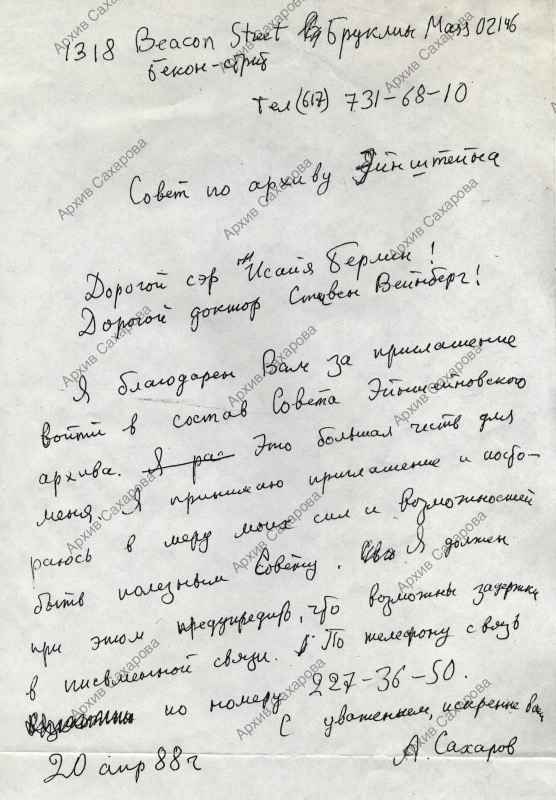 1318 Beacon Street Бруклин Mass 02146
Бекон-стрит
Тел (617) 731-68-10
Совет по архиву Эйнштейна
Дорогой сэр Исайя Берлин!
Дорогой доктор Стивен Вейнберг!
Я благодарен Вам за приглашение
войти в состав Совета Эйнштейновского
архива. Я ра Это большая честь для
меня. Я принимаю приглашение и поста-
раюсь в меру моих сил и возможностей
быть полезным Совету. Я должен
при этом предупредить, что возможны задержки
в письменной связи. По телефону связь
по номеру 227-36-50.
С уважением, искренне ваш
А. Сахаров
20 апр 88 г
Архив Сахарова